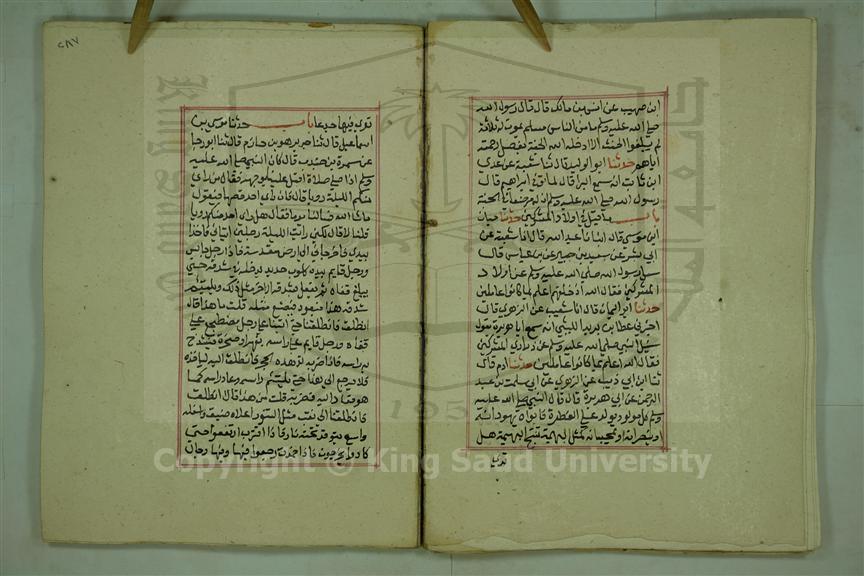 ابن صهيب عن انس بن مالك قال قال رسول الله
صلى الله عليه وسلم ما من الناس مسلم يموت له ثلاثة
لم يبلغوا الحنث الا ادخله الله الجنة بفضل رحمته
اياهم حدثنا ابو الوليد قال ثنا شعبة عن عدي
ابن ثابت انه سمع البرا قال لما توفي ابراهيم قال
رسول الله صلى الله عليه وسلم ان له مرضعا في الجنة
باب ما قيل في اولاد المشركين حدثنا حبان
ابن موسى قال انبانا عبد الله قال انا شعبة عن
ابي بشر عن سعيد بن جبير عن بن عباس قال
سيل رسول الله صلى الله عليه وسلم عن اولاد
المشركين فقال الله اذ خلقهم اعلم بما كانوا عاملين
حدثنا ابو اليمان قال انا شعيب عن الزهري قال
اخبرني عطا بن يزيد الليثي انه سمع ابا هريرة يقول
سيل النبي صلى الله عليه وسلم عن ذراري المشركين
فقال الله اعلم بما كانوا عاملين حدثنا ادم قال
ثنا ابن ابي ذيب عن الزهري عن ابي سلمة بن عبد
الرحمن عن ابي هريرة قال قال النبي صلى الله عليه
وسلم كل مولود يولد على الفطرة فابواه يهودانه
او ينصرانه او يمجسانه كمثل البهيمة تنتج البهيمة هل
ترى
٢٨٧
ترى فيها جدعا باب حدثنا موسى بن
اسماعيل قال ثنا جرير هو بن حازم قال ثنا ابو رجا
عن سمرة بن جندب قال كان النبي صلى الله عليه
وسلم اذا صلى صلاة اقبل علينا بوجهه فقال من راى
منكم الليلة رويا قال فان راى احد قصها فيقول
ما شا الله فسالنا يوما فقال هل راى احد منكم رويا
قلنا لا قال لكني رايت الليلة رجلين اتياني فاخذا
بيدي فاخرجاني الى الارض مقدسة فاذا رجل جالس
ورجل قايم بيده كلوب حديد يدخله في شدقه حتى
يبلغ قفاه ثم يفعل بشدقه الاخر مثل ذلك ويلتيم
شدقه هذا فيعود فيصنع مثله قلت ما هذا قال
انطلق فانطلقنا حتى اتينا على رجل مضطجع على
قفاه ورجل قايم على راسه بفهر او صخرة فيشدخ
به راسه فاذا ضربه تدهده الحجر فانطلق اليه لياخذه
فلا يرجع الى هذا حتى يلتيم راسه وعاد راسه كما
هو فعاد اليه فضربه قلت من هذا قال انطلق
فانطلقنا الى نقب مثل التنور اعلاه ضيق واسفله
واسع يتوقد تحته نارا فاذا اقترب ارتفعوا حتى
كادوا يخرجون فاذا خمدت رجعوا فيها وفيها رجال
Copyright © King Saud University
1957